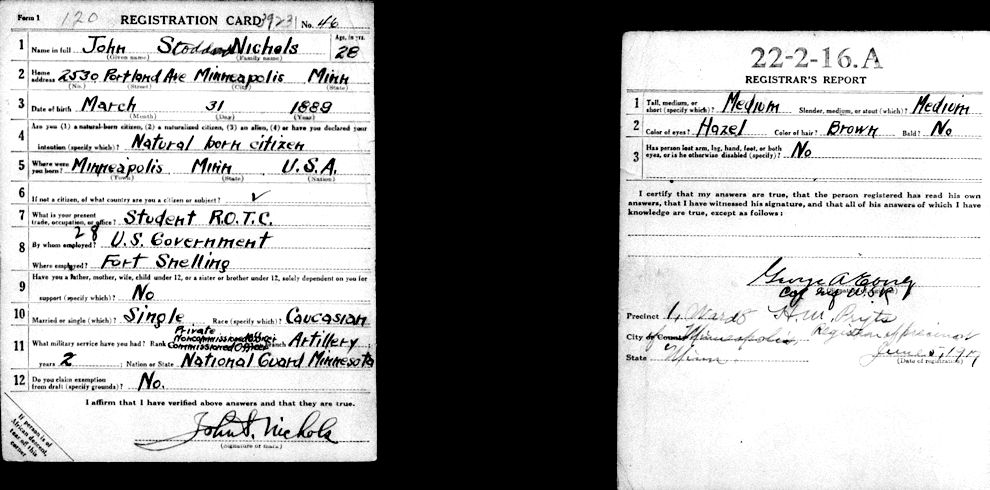 Form 1 120 REGISTRATION CARD 3923 No. 46
1 Name in full John Stoddard Nichols Age, in yrs. 28
(Given name) (Family name)
2 Home address 2530 Portland Ave Minneapolis Minn
(No.) (Street) (City) (State)
3 Date of birth March 31 1889
(Month) (Day) (Year)
4 Are you (1) a natural-born citizen, (2) a naturalized citizen, (3) an alien, (4) or have you declared your
intention (specify which)? Natural born citizen
5 Where were you born? Minneapolis Minn U.S.A.
(Town) (State) (Nation)
6 If not a citizen, of what country are you a citizen or subject? ✓
7 What is your present trade, occupation, or office? Student R.O.T.C.
28
8 By whom employed? U.S. Government
Where employed? Fort Snelling
9 Have you a father, mother, wife, child under 12, or a sister or brother under 12, solely dependent on you for
support (specify which)? No
10 Married or single (which)? Single Race (specify which)? Caucasian
Private
Noncommissioned Officer
11 What military service have you had? Rank Commissioned Officer branch Artillery
years 2 ; Nation or State National Guard Minnesota
12 Do you claim exemption from draft (specify grounds)? No.
I affirm that I have verified above answers and that they are true.
John S. Nichols
(Signature or mark)
If person is of
African descent,
tear off this
corner
22-2-16.A
REGISTRAR'S REPORT
1 Tall, medium, or short (specify which)? Medium Slender, medium, or stout (which)? Medium
2 Color of eyes? Hazel Color of hair? Brown Bald? No
3 Has person lost arm, leg, hand, foot, or both eyes, or is he otherwise disabled (specify)? No
I certify that my answers are true, that the person registered has read his own
answers, that I have witnessed his signature, and that all of his answers of which I have
knowledge are true, except as follows:
George A
Precinct 1, Ward 8
City or County Minneapolis
State Minn June 5, 1917
(Date of registration)